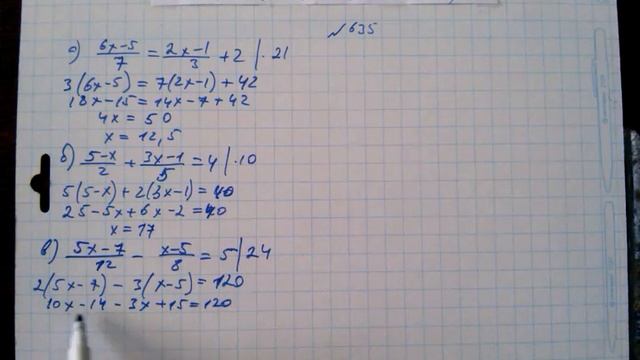 №635
а) (6x-5)/7 = (2x-1)/3 + 2 |·21
3(6x-5) = 7(2x-1) + 42
18x-15 = 14x-7+42
4x = 50
x = 12,5
б) (5-x)/2 + (3x-1)/5 = 4 |·10
5(5-x) + 2(3x-1) = 40
25-5x+6x-2 = 40
x = 17
в) (5x-7)/12 - (x-5)/8 = 5 | 24
2(5x-7) - 3(x-5) = 120
10x-14-3x+15 = 120